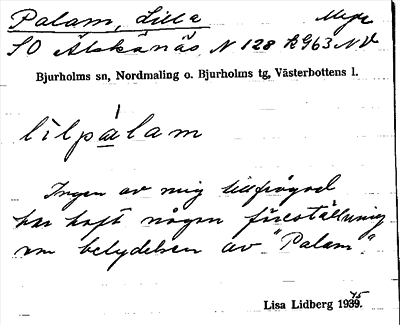 Palam, Lilla
SO Älskånäs, N 128 R963 NV
Bjurholms sn, Nordmaling o. Bjurholms tg, Västerbottens l.
lilpalam
Ingen av mig tillfrågad
har haft någon föreställning
om betydelsen av "Palam".
Lisa Lidberg 1935.